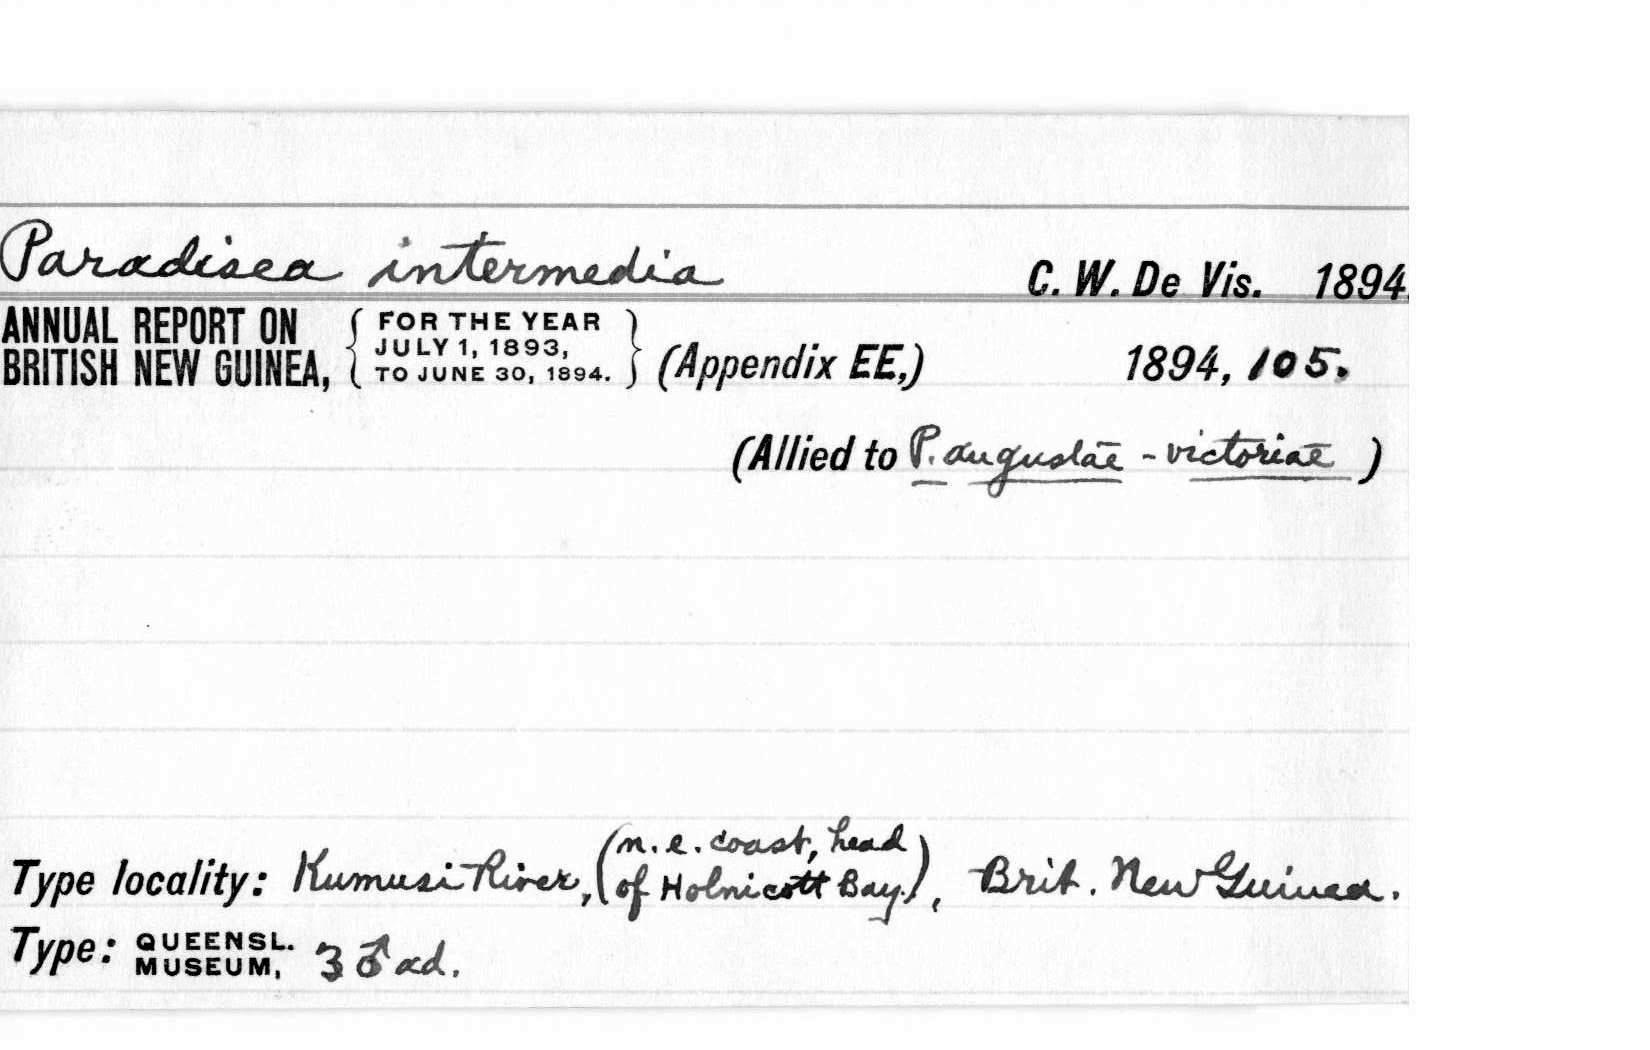 Paradisea intermedia C. W. De Vis. 1894.
ANNUAL REPORT ON BRITISH NEW GUINEA, { FOR THE YEAR JULY 1, 1893, TO JUNE 30, 1894. } (Appendix EE,) 1894, 105.
(Allied to P. augustae-victoriae)
Type locality: Kumusi River, (n. e. coast, head of Holnicott Bay), Brit. New Guinea.
Type: QUEENSL. MUSEUM, 3 ♂ ad.